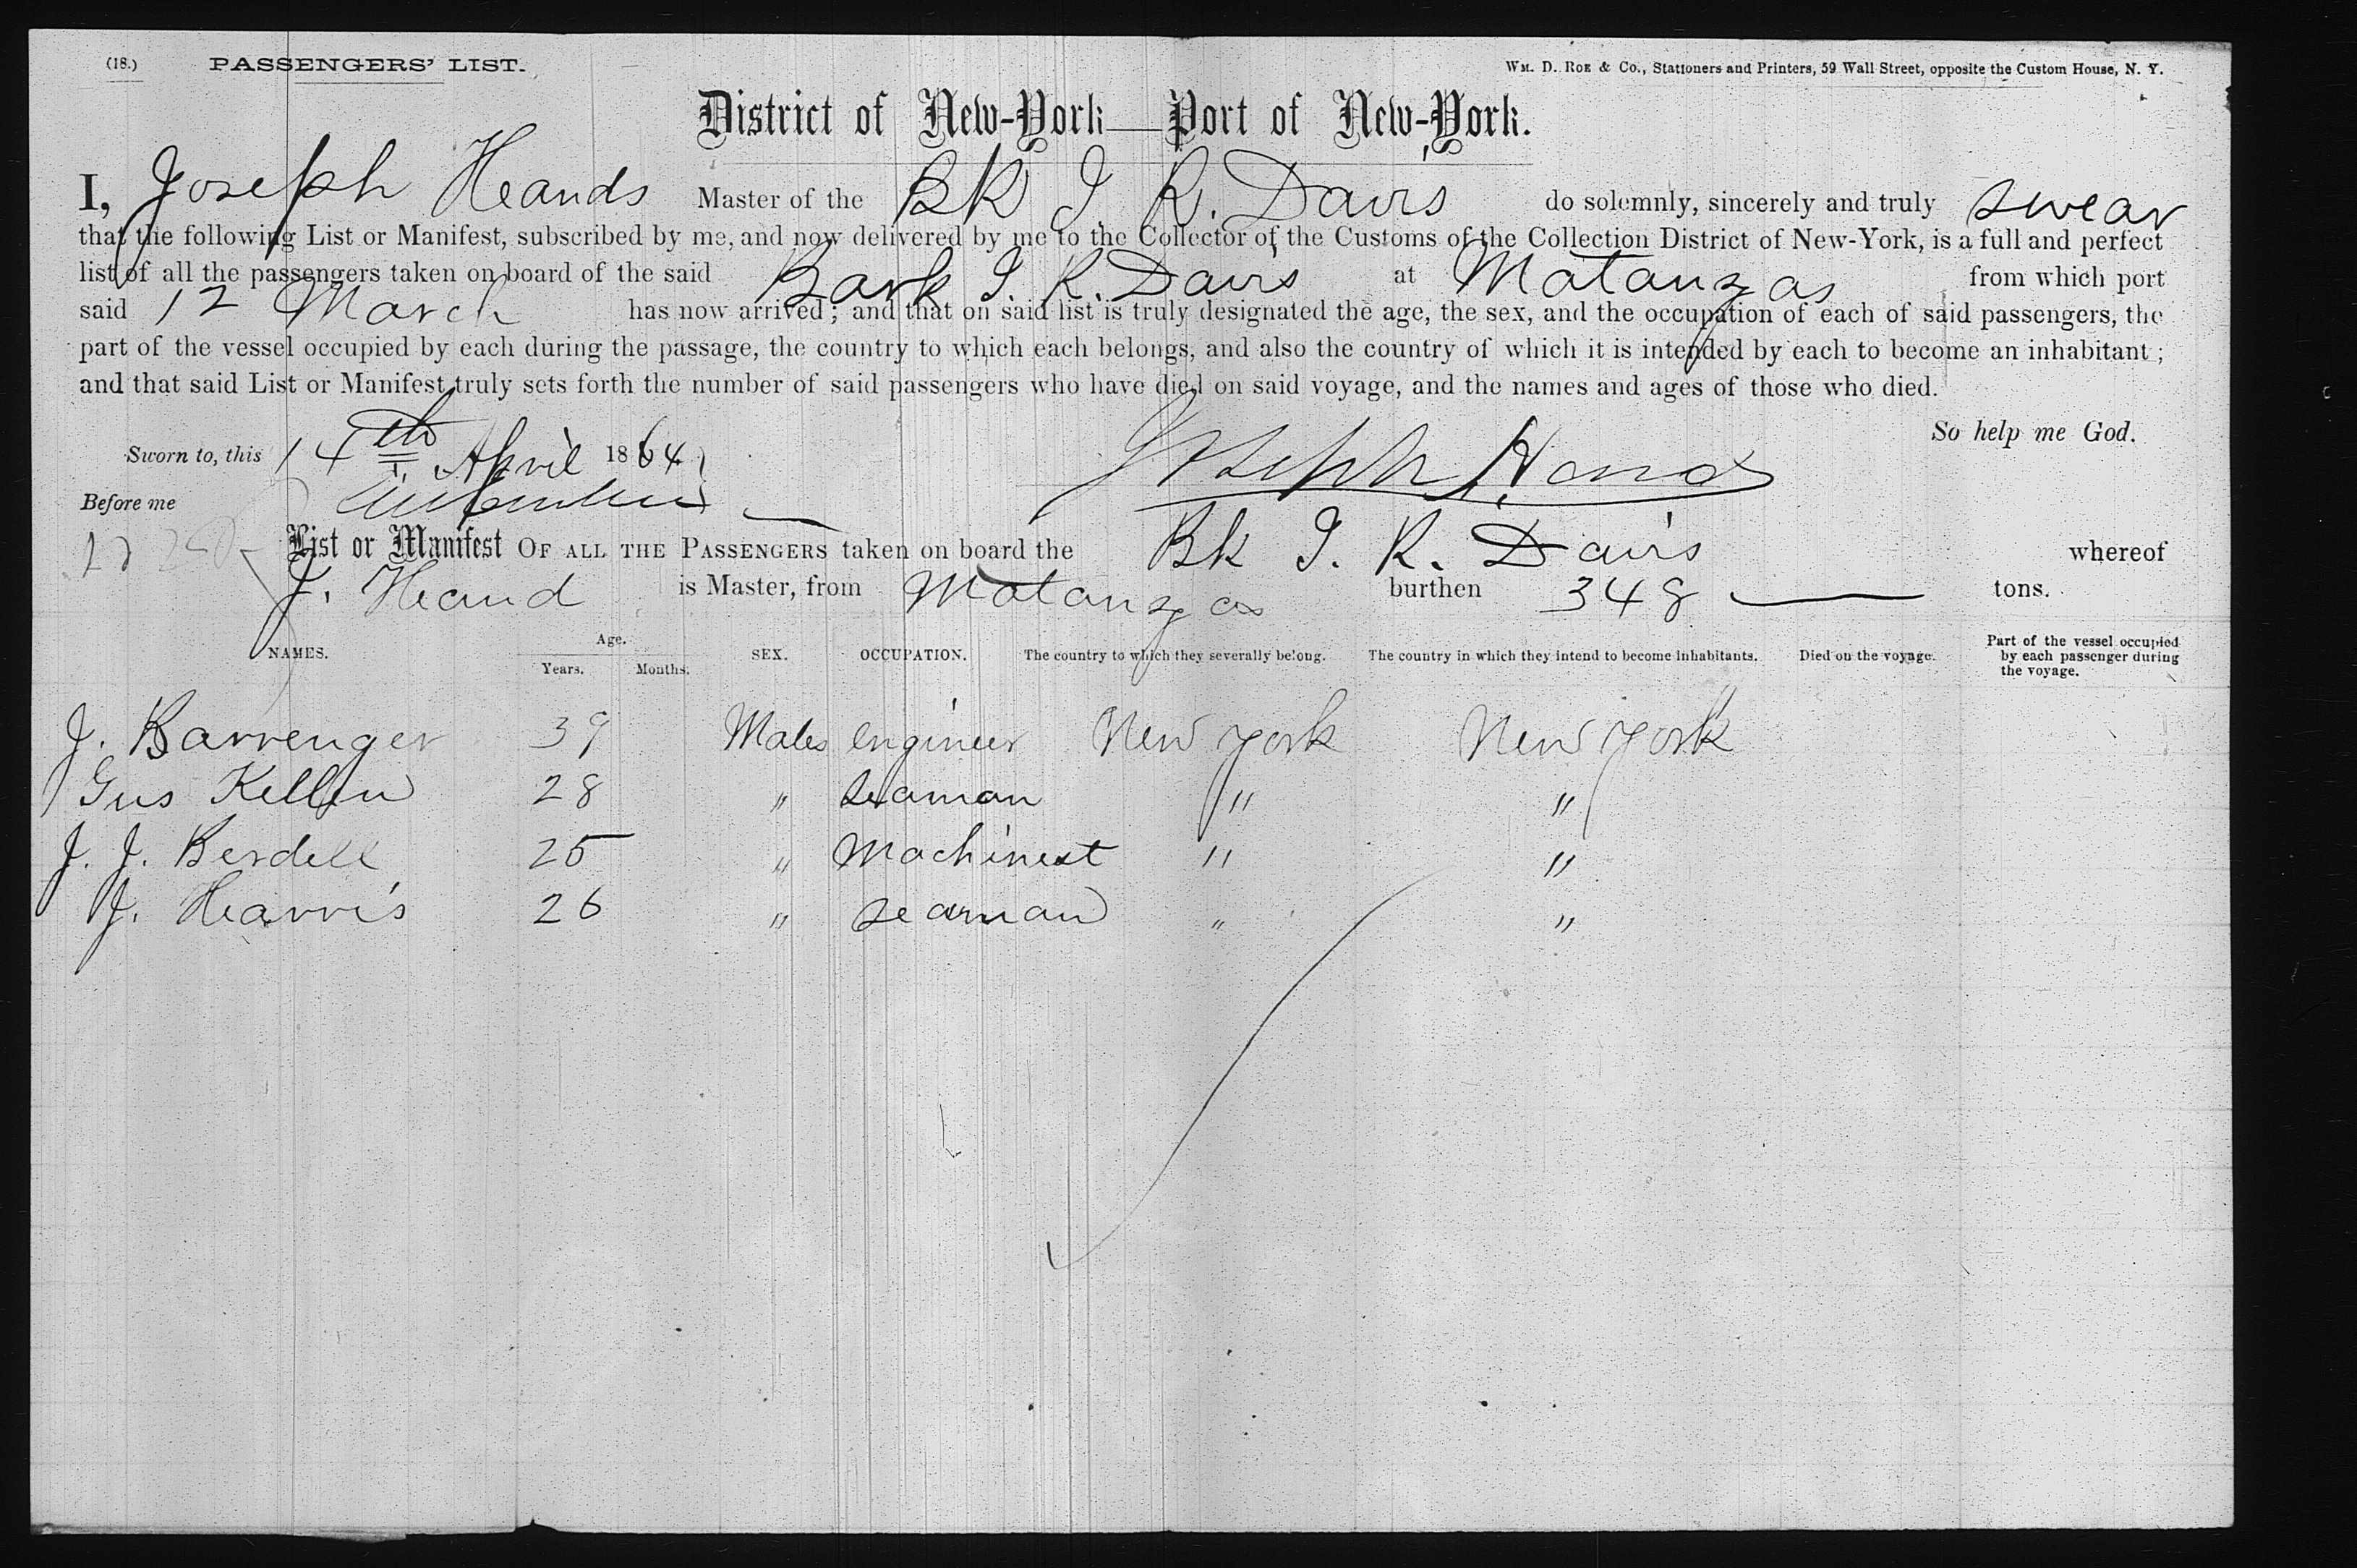 (18.) PASSENGERS' LIST. WM. D. ROE & CO., Stationers and Printers, 59 Wall Street, opposite the Custom House, N. Y.
District of New-York—Port of New-York.
I, Joseph Heands Master of the BK J. R. Davis do solemnly, sincerely and truly swear
that the following List or Manifest, subscribed by me, and now delivered by me to the Collector of the Customs of the Collection District of New-York, is a full and perfect
list of all the passengers taken on board of the said Bark J. R. Davis at Matanzas from which port
said 12 March has now arrived; and that on said list is truly designated the age, the sex, and the occupation of each of said passengers, the
part of the vessel occupied by each during the passage, the country to which each belongs, and also the country of which it is intended by each to become an inhabitant;
and that said List or Manifest truly sets forth the number of said passengers who have died on said voyage, and the names and ages of those who died.
So help me God.
Sworn to, this 14th April 1864 Joseph Hand
Before me
List or Manifest OF ALL THE PASSENGERS taken on board the Bk J. R. Davis whereof
J. Heand is Master, from Matanzas burthen 348 tons.
NAMES. Age. Years. Months. SEX. OCCUPATION. The country to which they severally belong. The country in which they intend to become inhabitants. Died on the voyage. Part of the vessel occupied by each passenger during the voyage.
J. Barrenger 39 Males engineer New york New york
Gus Kellin 28 " seaman " "
J. J. Berdell 25 " Machinest " "
J. Hearris 26 " seaman " "